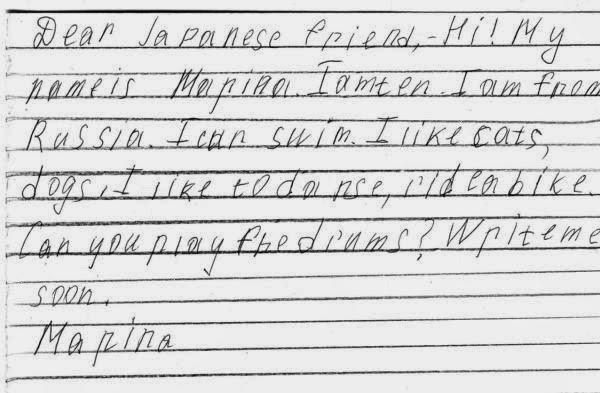 Dear Japanese friend,-Hi! My
name is Mapina. I am ten. I am from
Russia. I can swim. I like cats,
dogs, I like to danse, ride a bike.
Can you play the drums? Wpite me
soon.
Mapina